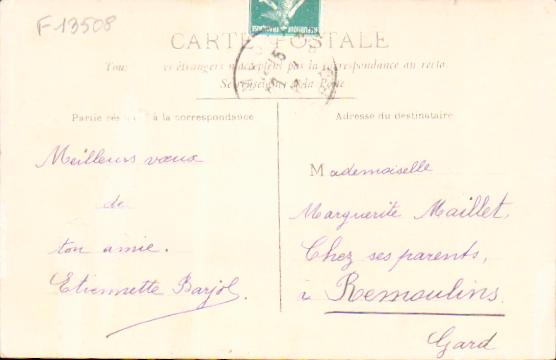 F-13508
RÉPUBLIQUE FRANÇAISE
CARTE POSTALE
Tous étrangers n'acceptent pas la correspondance au recto
Se renseigner à la Poste
Partie à la correspondance
Adresse du destinataire
Meilleurs vœux
de
ton amie.
Etiennette Barjol.
Mademoiselle
Marguerite Maillet,
Chez ses parents,
à Remoulins.
Gard